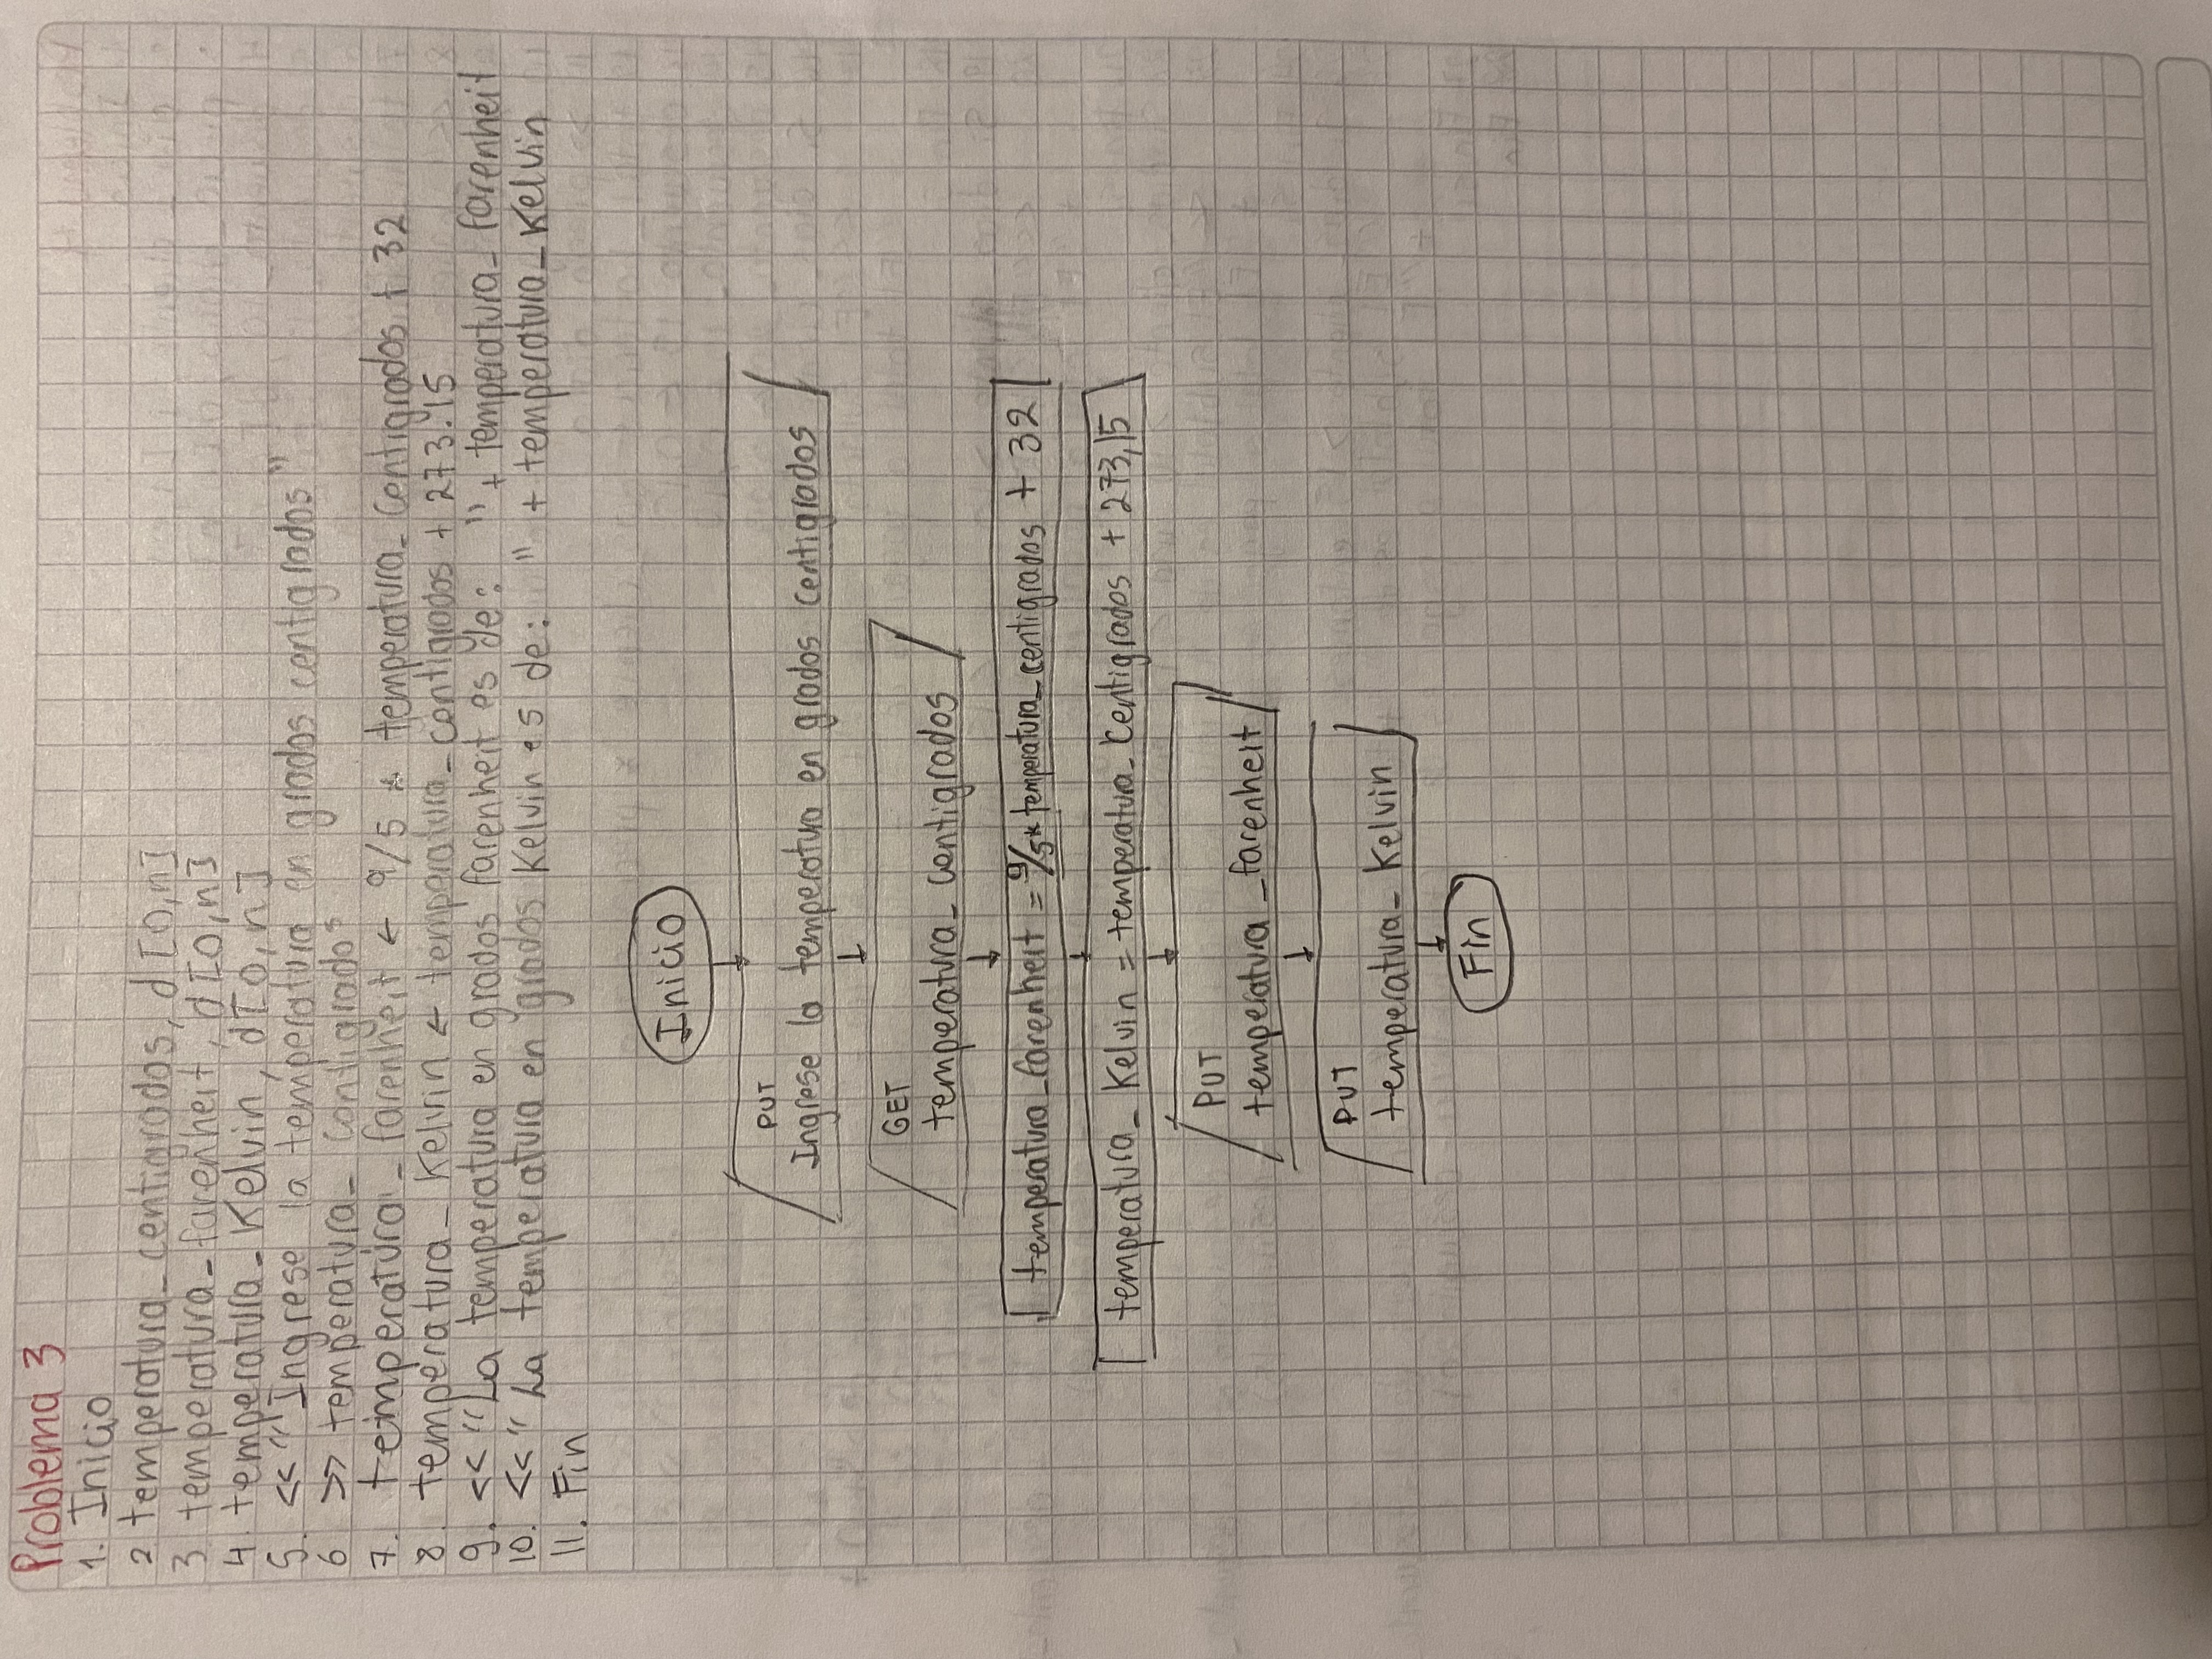 Problema 3
1. Inicio
2 temperatura_centigrados, d[0,n]
3 temperatura_farenheit, d[0,n]
4. temperatura_Kelvin, d[0,n]
5. <<"Ingrese la temperatura en grados centigrados"
6 >> temperatura_centigrados
7. temperatura_farenheit ← 9/5 * temperatura_centigrados + 32
8. temperatura_Kelvin ← temperatura_centigrados + 273.15
9. <<"La temperatura en grados farenheit es de: " + temperatura_farenheit
10. <<"La temperatura en grados Kelvin es de: " + temperatura_Kelvin
11. Fin
Inicio
PUT
Ingrese la temperatura en grados centigrados
GET
temperatura_centigrados
temperatura_farenheit = 9/5* temperatura_centigrados + 32
temperatura_Kelvin = temperatura_centigrados + 273,15
PUT
temperatura_farenheit
PUT
temperatura_Kelvin
Fin